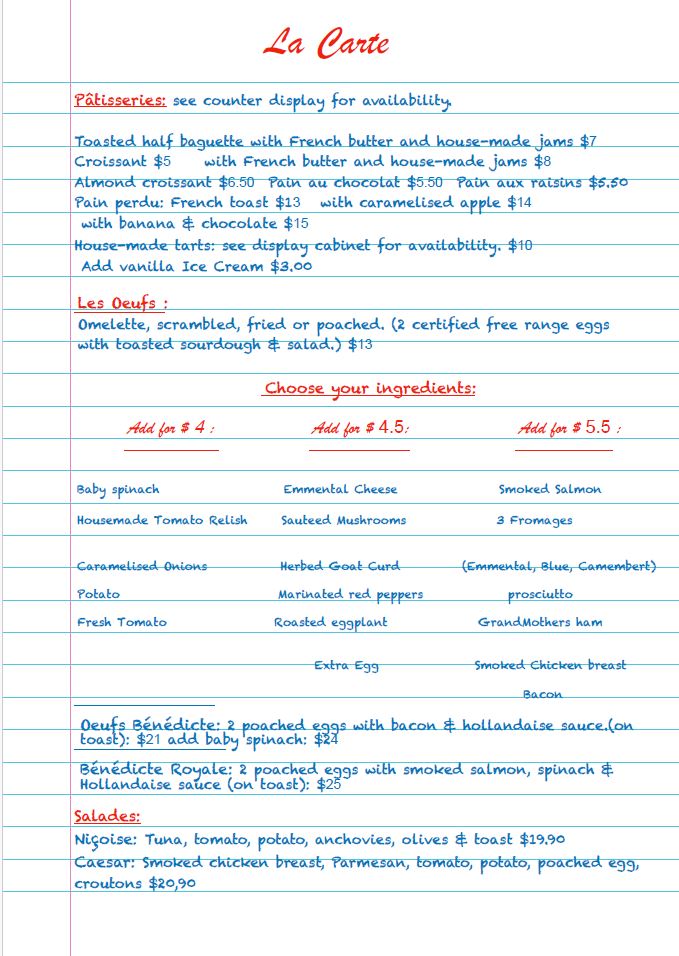 La Carte
Pâtisseries: see counter display for availability.
Toasted half baguette with French butter and house-made jams $7
Croissant $5 with French butter and house-made jams $8
Almond croissant $6.50 Pain au chocolat $5.50 Pain aux raisins $5.50
Pain perdu: French toast $13 with caramelised apple $14
with banana & chocolate $15
House-made tarts: see display cabinet for availability. $10
Add vanilla Ice Cream $3.00
Les Oeufs :
Omelette, scrambled, fried or poached. (2 certified free range eggs
with toasted sourdough & salad.) $13
Choose your ingredients:
Add for $ 4 : Add for $ 4.5: Add for $ 5.5 :
Baby spinach Emmental Cheese Smoked Salmon
Housemade Tomato Relish Sauteed Mushrooms 3 Fromages
Caramelised Onions Herbed Goat Curd (Emmental, Blue, Camembert)
Potato Marinated red peppers prosciutto
Fresh Tomato Roasted eggplant GrandMothers ham
Extra Egg Smoked Chicken breast
Bacon
Oeufs Bénédicte: 2 poached eggs with bacon & hollandaise sauce.(on
toast): $21 add baby spinach: $24
Bénédicte Royale: 2 poached eggs with smoked salmon, spinach &
Hollandaise sauce (on toast): $25
Salades:
Niçoise: Tuna, tomato, potato, anchovies, olives & toast $19.90
Caesar: Smoked chicken breast, Parmesan, tomato, potato, poached egg,
croutons $20,90